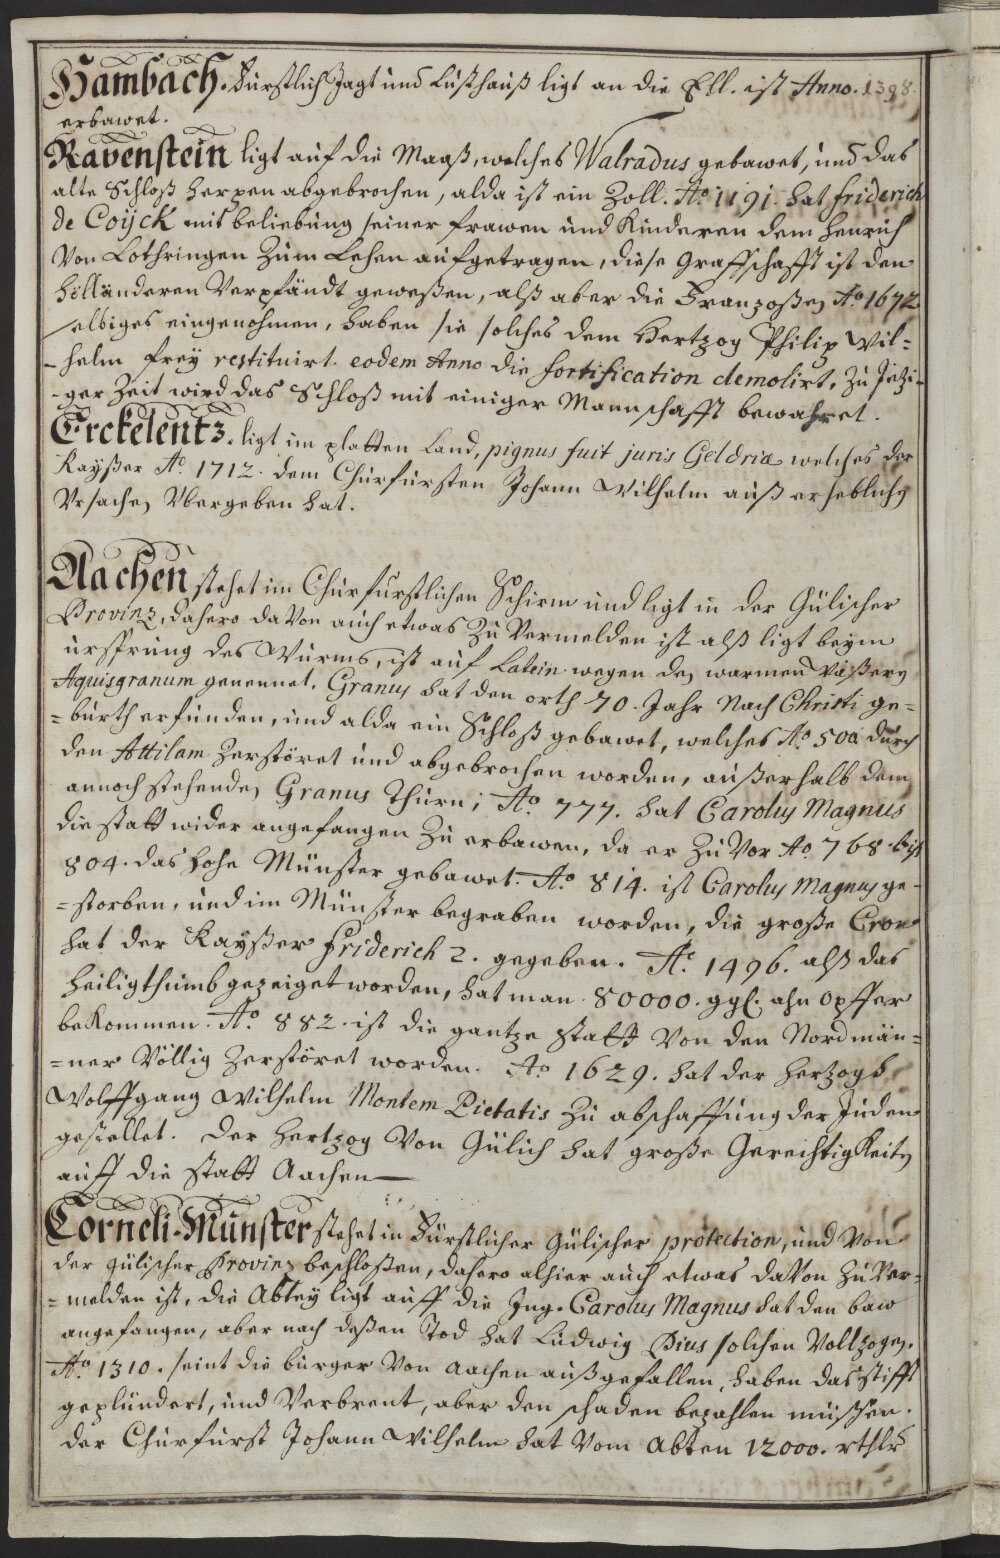 Hambach. Fürstlich Jagt und Lusthauß ligt an die Ell. ist Anno. 1398.
erbawet.
Ravenstein ligt auf die Maaß, welches Walradus gebawet, und das
alte Schloß Herpen abgebrochen, alda ist ein Zoll. Ao. 1191. hat friderich
de Coijck mit beliebung seiner frawen und Kinderen dem Henrich
Von Lothringen Zum Lehen aufgetragen, diese Graffschafft ist den
Holländeren Verpfändt geweßen, alß aber die Franzoßen Ao. 1672
selbiges eingenohmen, haben sie solches dem Hertzog Philip Wil=
-helm frey restituirt. eodem Anno die fortification demolirt, Zu Jetzi-
-ger Zeit wird das Schloß mit einiger Mannschafft bewahret.
Erckelentz. ligt im platten Land, pignus fuit juris Geldriæ welches der
Kayßer Ao. 1712. dem Churfürsten Johann Wilhelm auß erheblichen
Ursachen Ubergeben hat.
Aachen stehet im Churfürstlichen Schirm und ligt in der Gülischer
Provinz, dahero daVon auch etwas Zu Vermelden ist alß ligt beym
ursprung des Wurms, ist auf Latein wegen den warmen Waßeren
Aquisgranum genennet. Granus hat den orth 70. Jahr Nach Christi ge=
=burth erfunden, und alda ein Schloß gebawet, welches Ao. 500 durch
den Attilam Zerstöret und abgebrochen worden, außerhalb dem
annoch stehenden Granus Thurn; Ao. 777. hat Carolus Magnus
die statt wider angefangen Zu erbawen, da er Zu Vor Ao. 768. biß
804. das hohe Münster gebawet. Ao. 814. ist Carolus Magnus ge-
=storben, und im Münster begraben worden, die große Cron
hat der Kayßer friderich 2. gegeben. Ao. 1496. alß das
Heiligthumb gezeiget worden, hat man 80000. ggl. ahn opffer
beKommen. Ao. 882. ist die gantze statt Von den Nordmän=
=ner Völlig Zerstöret worden. Ao. 1629. hat der Hertzogh
Wolffgang Wilhelm Montem Pietatis Zu abschaffung der Juden
gestellet. Der Hertzog Von Gülich hat große GerechtigKeiten
auff die statt Aachen
Corneli-Münster stehet in Fürstlicher Gülischer protection, und Von
der gülischer Provinz beschloßen, dahero alhier auch etwas daVon Zu Ver=
=melden ist, die Abtey ligt auff die Ing. Carolus Magnus hat den baw
angefangen, aber nach deßen Tod hat Ludwig Pius solchen Vollzogen.
Ao. 1310. seint die bürger Von Aachen außgefallen, haben das stifft
geplündert, und Verbrent, aber den schaden bezahlen müßen.
Der Churfürst Johann Wilhelm hat Vom Abten 12000. rthlr